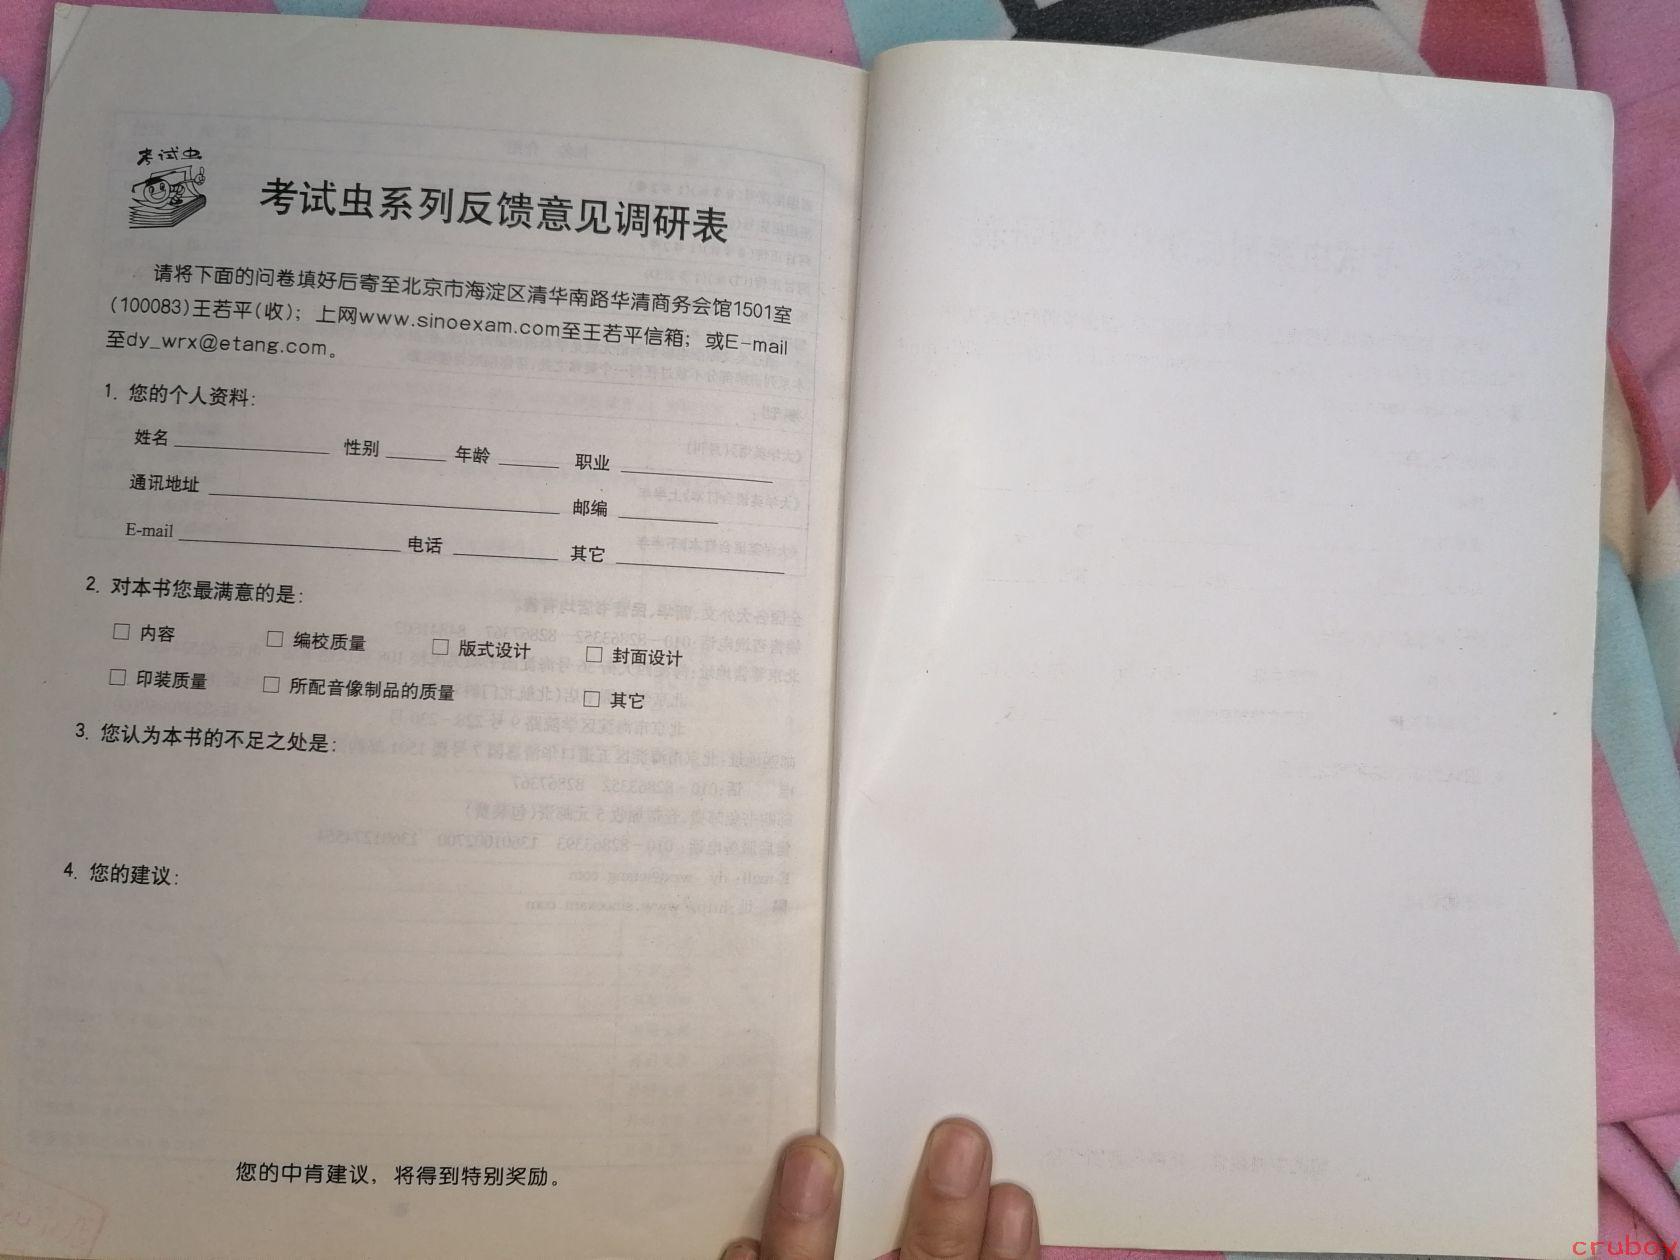 考试虫
考试虫系列反馈意见调研表
请将下面的问卷填好后寄至北京市海淀区清华南路华清商务会馆1501室
(100083)王若平(收)；上网www.sinoexam.com至王若平信箱；或E-mail
至dy_wrx@etang.com。
1. 您的个人资料:
姓名 性别 年龄 职业
通讯地址 邮编
E-mail 电话 其它
2. 对本书您最满意的是:
□ 内容 □ 编校质量 □ 版式设计 □ 封面设计
□ 印装质量 □ 所配音像制品的质量 □ 其它
3. 您认为本书的不足之处是:
4. 您的建议:
您的中肯建议，将得到特别奖励。